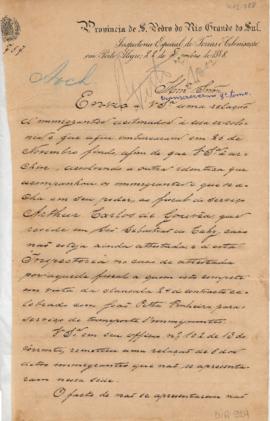 Provincia de S. Pedro do Rio Grande do Sul.
Inspectoria Especial de Terras e Colonisação
em Porto Alegre,
Illmo. Snr.
Envio a V.Sa. uma relação
d'immigrantes destinados a essa
e que aqui embarcaram em 20 de
Novembro findo, afim de que V.Sa.
devolvendo a outra identica que
acompanhou os immigrantes e que se a-
cha em seu poder, ao fiscal do serviço
Arthur Carlos de que
reside em São Sebastião do Cahy, caso
não esteja ainda attestada e a esta
Inspectoria no caso de attestada
por aquelle fiscal a quem isto compete
em vista da clausula do contracto ce-
lebrado com João Pinheiro para o
serviço de transporte d'immigrantes.
V.Sa. em seu officio nº de 13 do
corrente, remetteu uma relação de dos
ditos immigrantes que não se apresenta-
ram nessa sede.
O facto de não se apresentarem